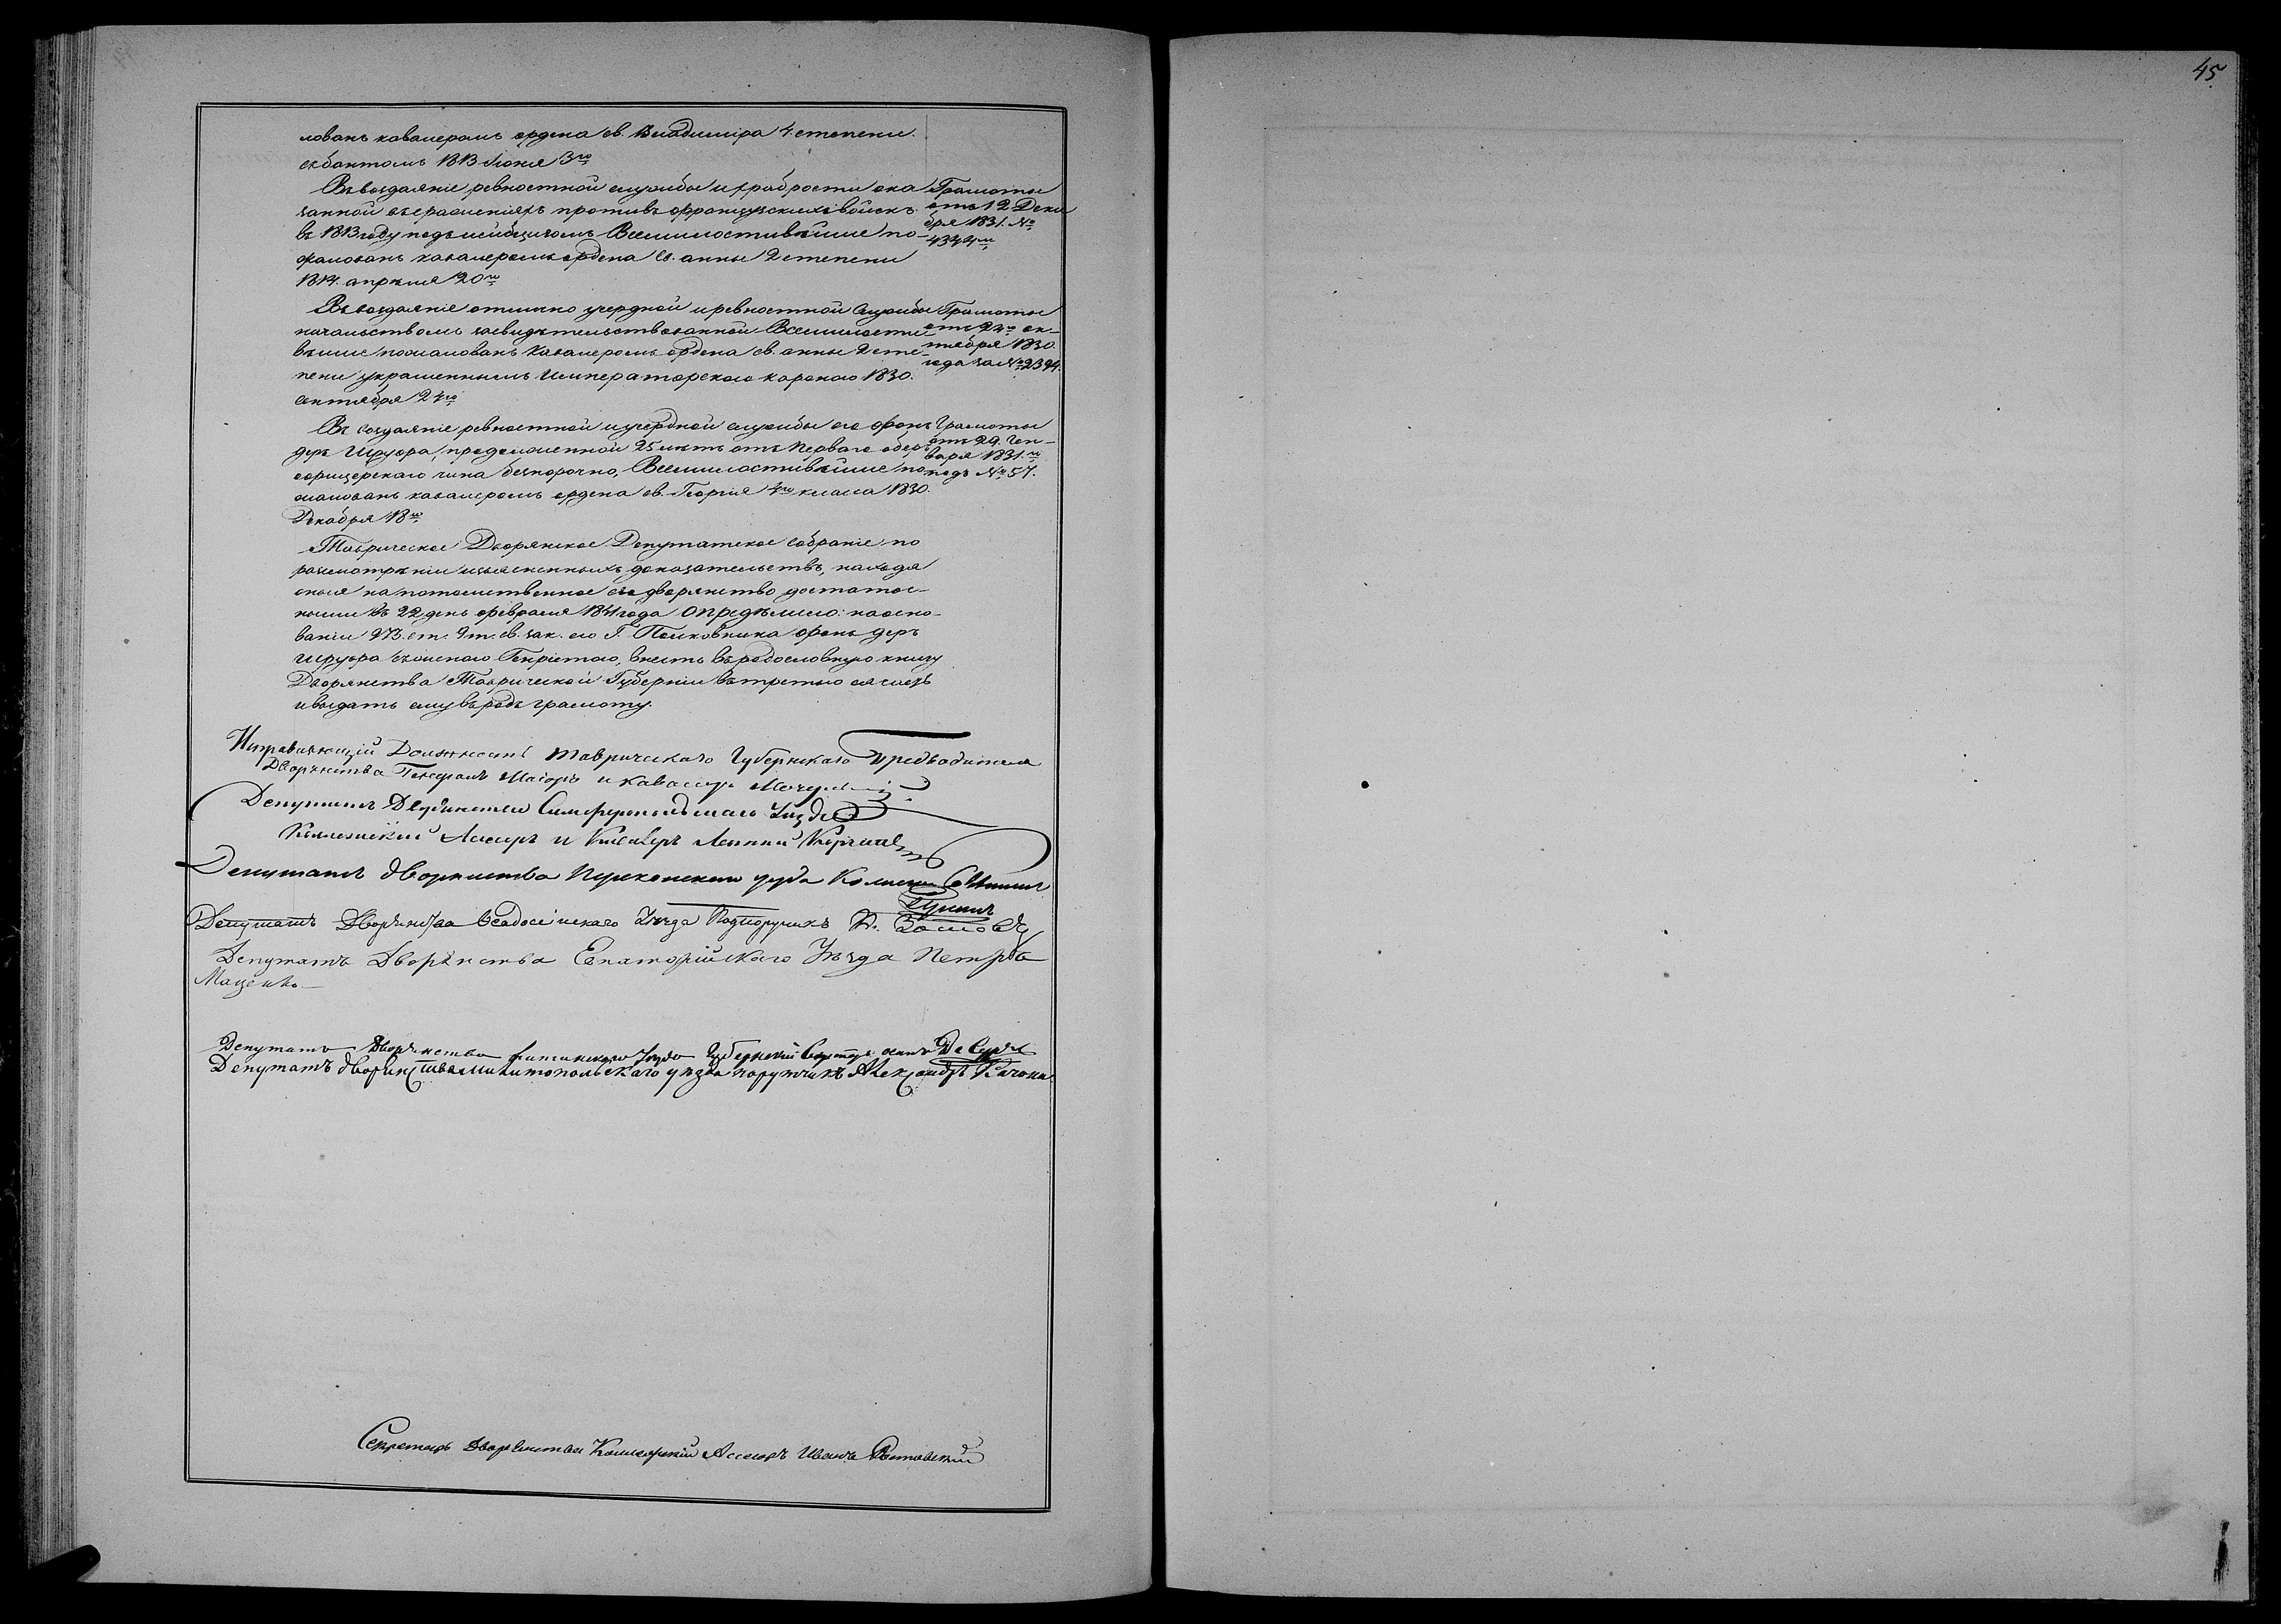 45
лованъ кавалеромъ ордена св. Владиміра 4 степени
съ бантомъ 1813 Іюня 3го
Въ воздаяніе ревностной службы и храбрости ока
занной въ сраженіяхъ противъ французскихъ войскъ
въ 1813 году подъ Всемилостивѣйше по-
жалованъ кавалеромъ ордена Св. анны 2 степени
1814. апрѣля 20го
Грамоты
отъ 12 Дека
бря 1831. №
4344м
Въ воздаяніе отлично усердной и ревностной службы
начальствомъ засвидѣтельствованной Всемилости-
вѣише пожалованъ Кавалеромъ ордена св. анны 2 сте-
пени украшеннымъ Императорскою короною 1830.
Сентября 24го
Грамоты
отъ 24го сен-
тября 1830.
года за № 2394.
Въ воздаяніе ревностной и усердной службы его фонъ
деръ Шруфа, продолженной 25 лѣтъ отъ перваго оберъ
офицерскаго чина безпорочно, Всемилостивѣише по
жалованъ кавалеромъ ордена св. Георгія 4го класа 1830.
Декабря 18го
Грамоты
отъ 29. Ген-
варя 1831.го
подъ № 57.
Таврическое Дворянское Депутатское собраніе, по
разсмотрѣніи изъясненныхъ доказательствъ, находя
оныя на потомственное его дворянство достаточ-
ными въ 22 день февраля 1841 года опредѣлило: на осно-
ваніи 273. ст. 9 т. св. зак. его Г. Полковника фонъ деръ
Шруфа съ женою Генріетою, внесть въ родословную книгу
Дворянства Таврической Губерніи въ третью ея часть
и выдать ему въ родъ грамоту.
Исправляющій Должность Таврическаго Губернскаго Предводителя
Дворянства Генералъ Маіоръ и кавалеръ
Депутатъ Дворянства Симферопольскаго Уѣзда
Коллежскій Ассесоръ и Кавалеръ
Депутатъ дворянства Перекопскаго уѣзда
Депутатъ Дворянства Ѳеодосійскаго Уѣзда Подпоручикъ
Депутатъ Дворянства Евпаторійскаго Уѣзда Петръ
Маценко
Депутатъ Дворянства Ялтинскаго Уѣзда Губернскій Секретарь
Депутатъ дворянства Мелитопольскаго уѣзда поручикъ Александръ
Секретарь Дворянства Коллежскій Ассесоръ Иванъ